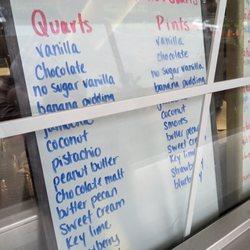 Quarts
vanilla
Chocolate
no sugar vanilla
banana pudding
coconut
Pistachio
peanut butter
chocolate malt
butter pecan
Sweet cream
Key lime
Pints
vanilla
Chocolate
no sugar vanilla
banana pudding
coconut
smores
butter pecan
Sweet cream
Key lime